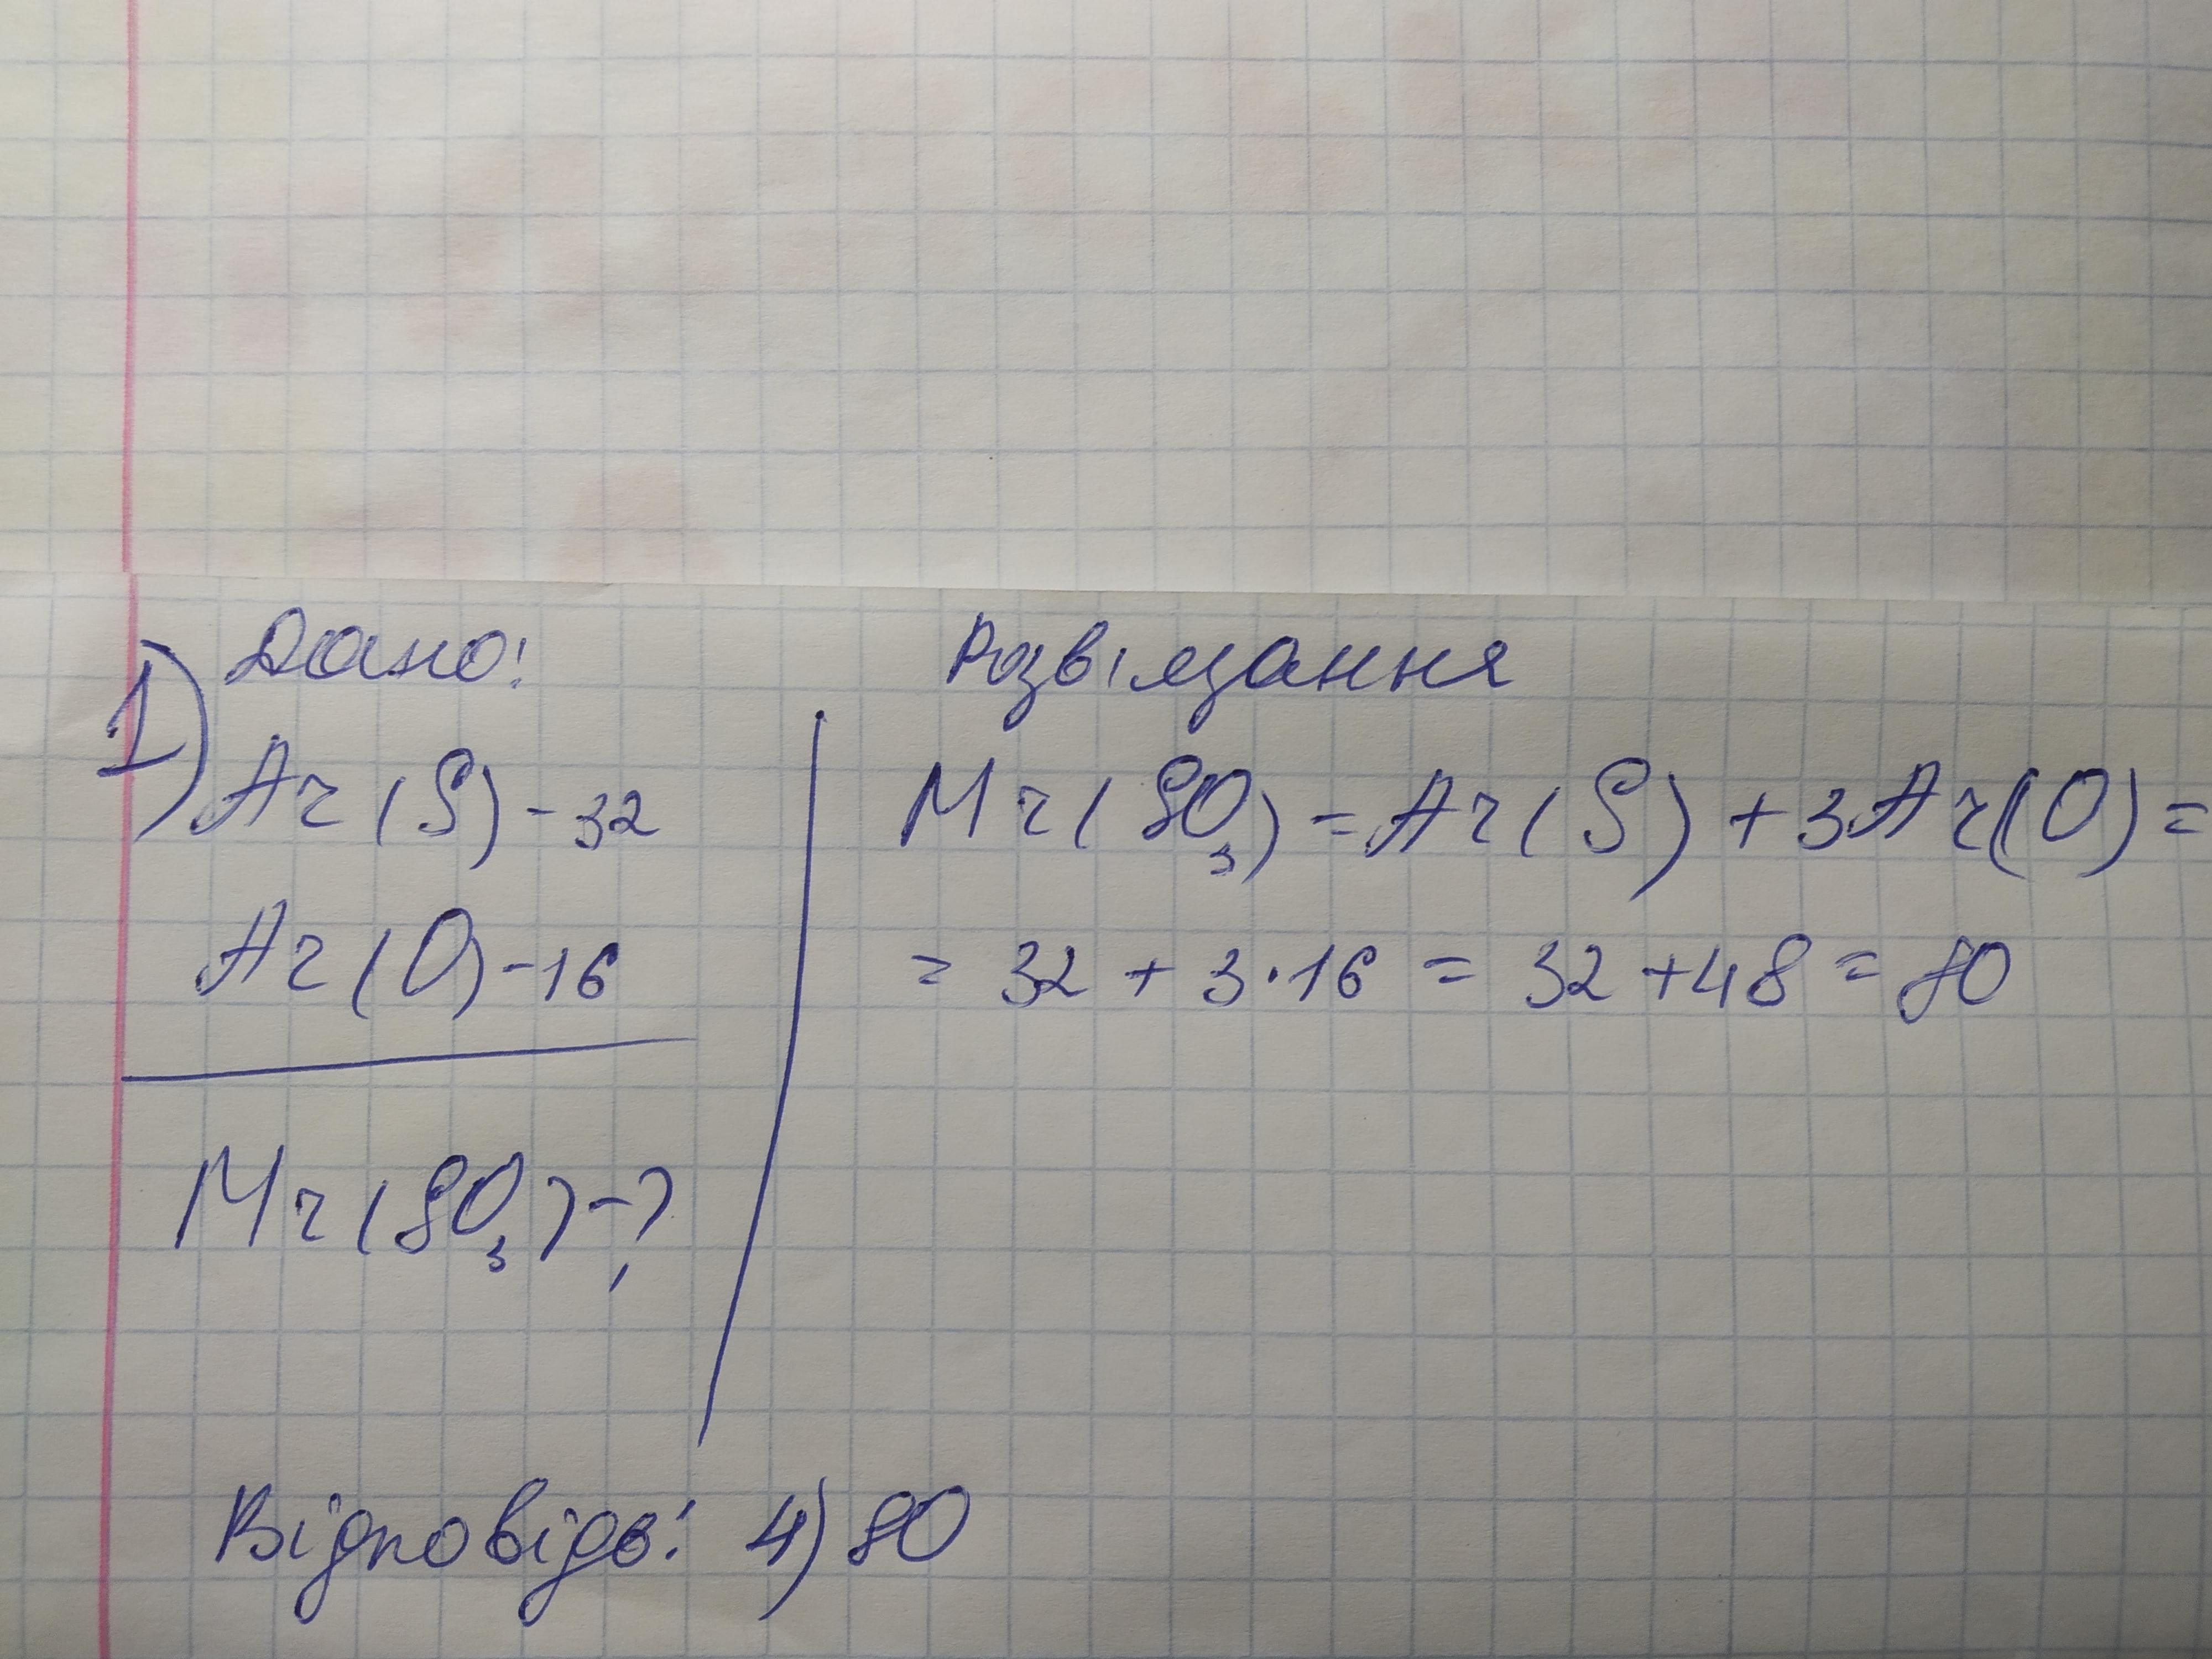 1) Дано:
Ar (S) - 32
Ar (O) - 16
Mr (SO₃) - ?
Розвіязання
Mr (SO₃) = Ar (S) + 3Ar (O) =
= 32 + 3·16 = 32 + 48 = 80
Відповідь: 4) 80